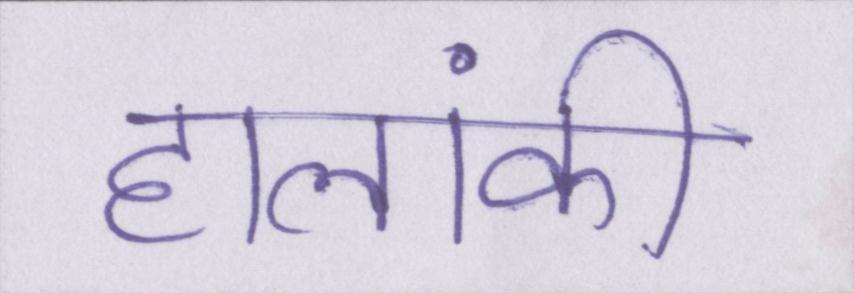 हालांकी